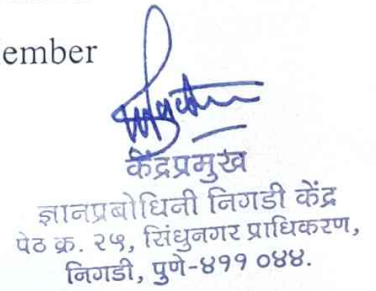 ember
केंद्रप्रमुख
ज्ञानप्रबोधिनी निगडी केंद्र
पेठ क्र. २५, सिंधुनगर प्राधिकरण,
निगडी, पुणे-४११ ०४४.